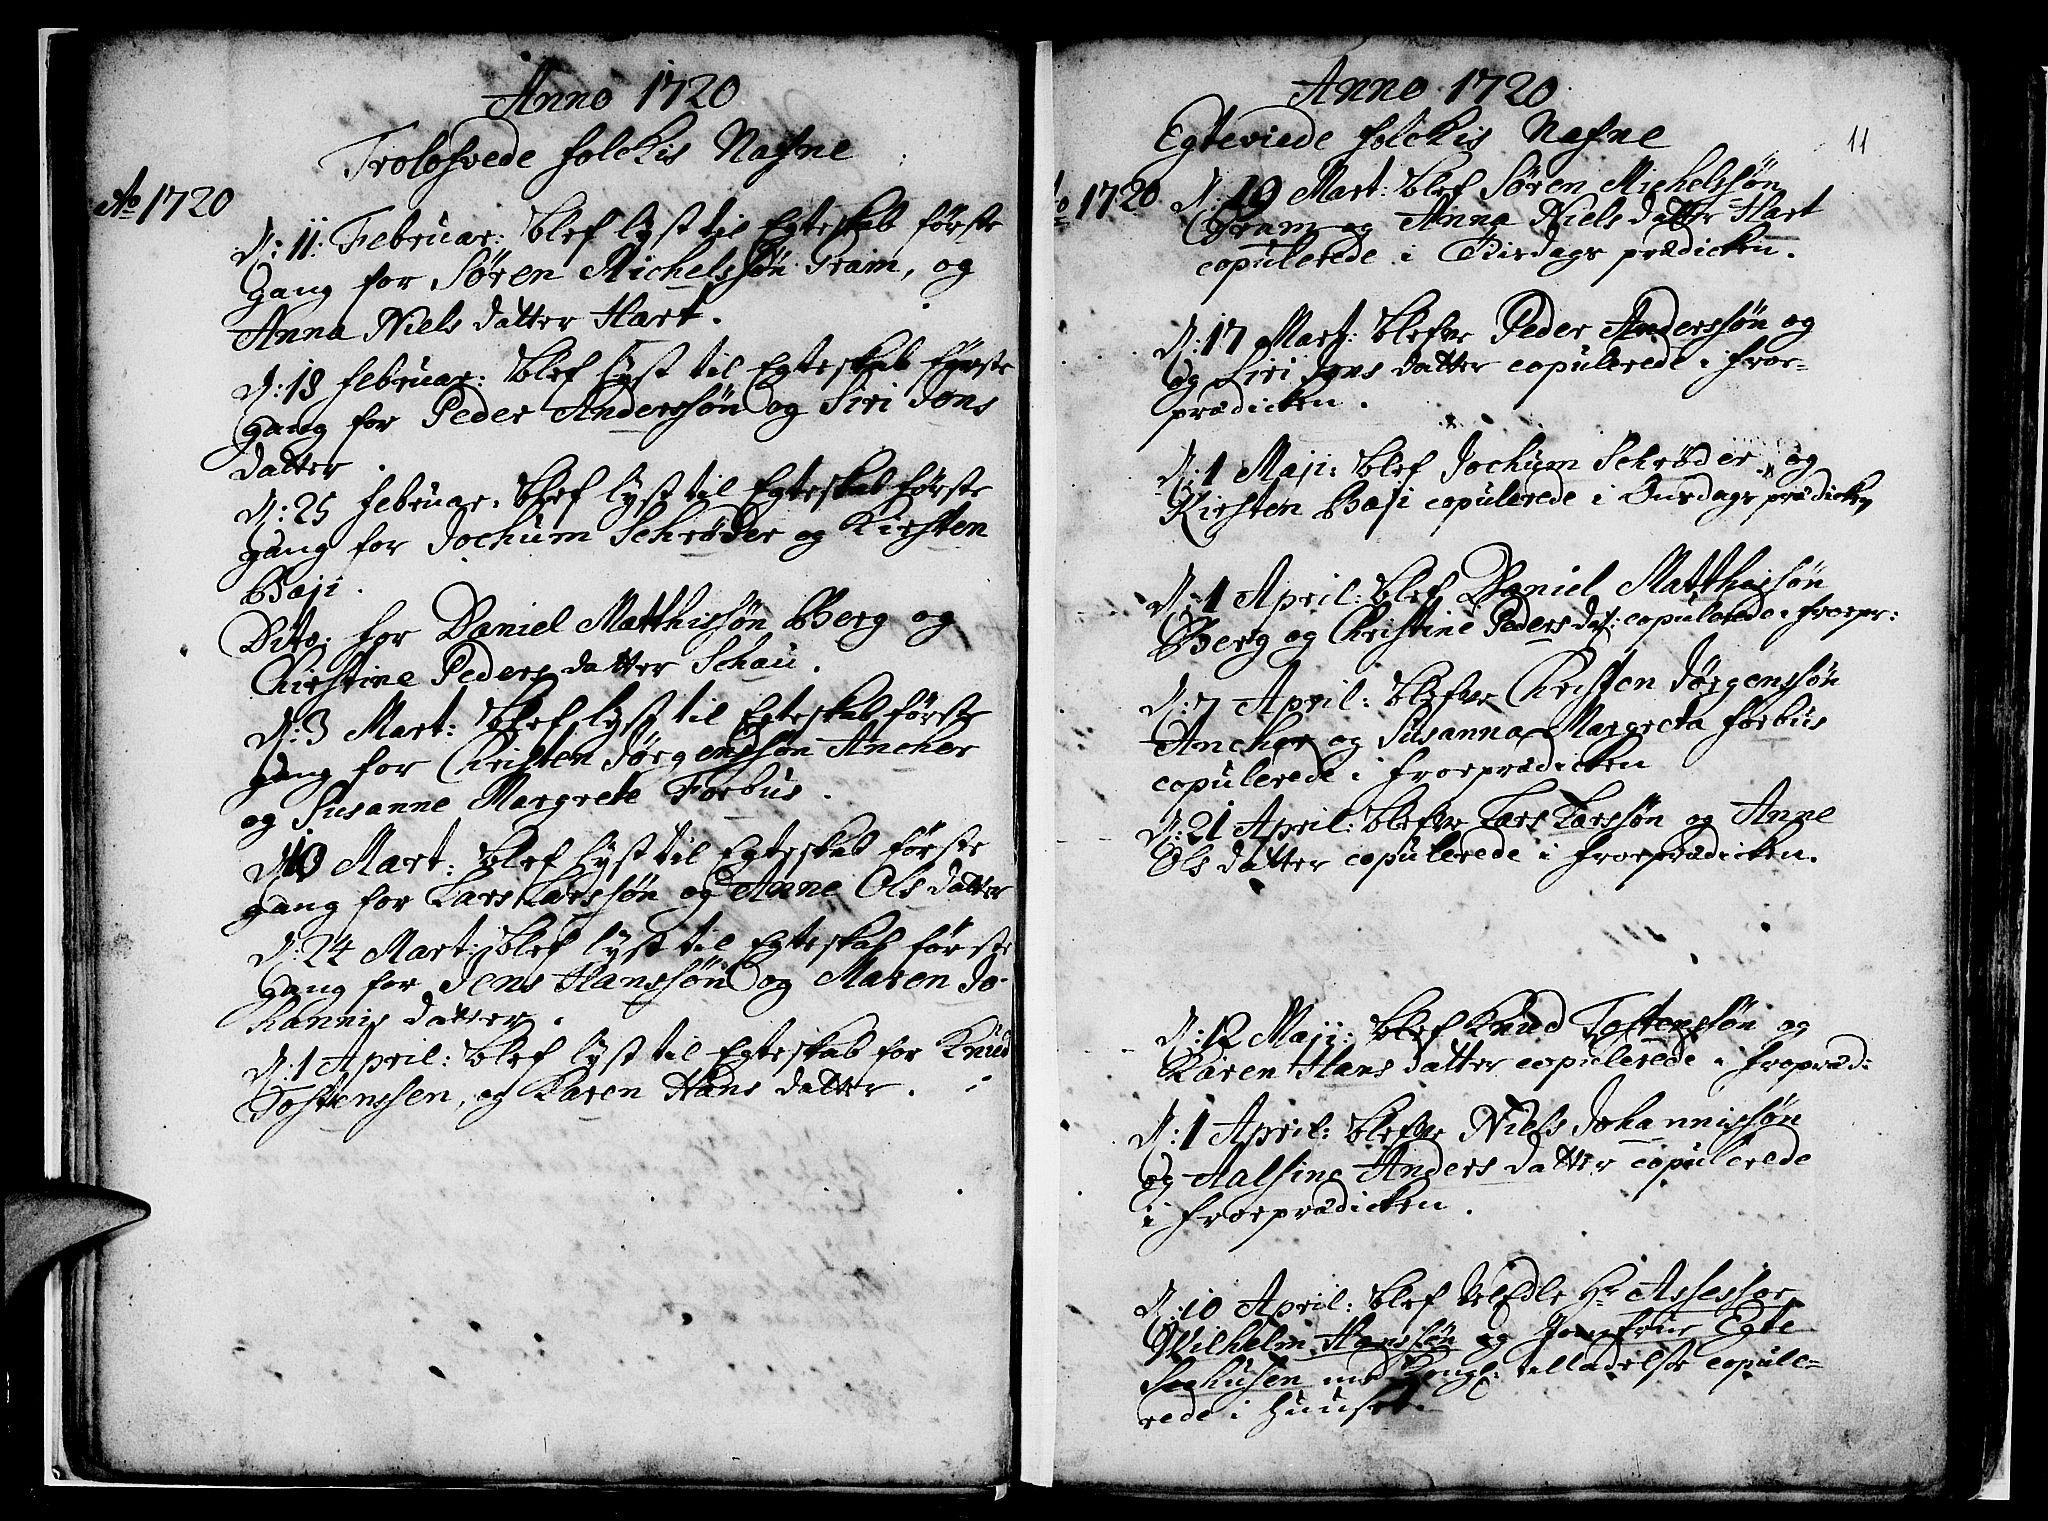 Anno 1720
Trolofvede folckis Nafne
Ao 1720
D: 11: Februar: blef lyst til Egteskab første
gang for Søren Michelssøn Gram, og
Anna Niels datter Hart.
D: 18 februar: blef lyst til Egteskab første
gang for Peder Anderssøn og Siri Jons
datter.
D: 25 februar. blef lyst til Egteskab første
gang for Jochum Schrøder og Kirsten
Baji.
Dito: for Daniel Matthissøn Berg og
Christine Peders datter Schau.
D: 3 Mart: blef lyst til Egteskab første
gang for Christen Jørgenssøn Ancher
og Susanne Margrete Forbus.
D: 10 Mart: blef lyst til Egteskab første
gang for Lars Larssøn og Anne Ols datter
D: 24 Mart: blef lyst til Egteskab første
gang for Jens Hanssøn og Maren Jo-
hannis datter.
D: 1 April: blef lyst til Egteskab for Knud
Tostenssen, og Karen Hans datter.
Anno 1720
Egteviede folckis Nafne
11
1720
D: 19 Mart: blef Søren Michelssøn
Gram og Anna Niels datter Hart
copulerede i Tirsdags prædicken.
D: 17 Mart: blefve Peder Anderssøn og
og Siri Jons datter copulerede i froe-
prædicken.
D: 1 Maji: blef Jochum Schrøder og
Kirsten Baji copulerede i Onsdags prædicken
D: 1 April: blef Daniel Matthissøn
Berg og Christine Peders dat: copulerede i froepr:
D: 7 April: blefve Christen Jørgenssøn
Ancher og Susanna Margreta Forbus
copulerede i froeprædicken
D: 21 April: blefve Lars Larssøn og Anne
Ols datter copulerede i froeprædicken.
D: 12 Maji: blef Knud Tostenssøn og
Karen Hans datter copulerede i froepræd:
D: 1 April: blefve Niels Johannissøn
og Aalsine Anders datter copulerede
i froeprædicken.
D: 10 April: blef VelEdle Hr Assessor
Wilhelm Hanssøn og Jomfrue Egte
Seehusen med Kongl: tilladelse copule-
rede i Huuset.